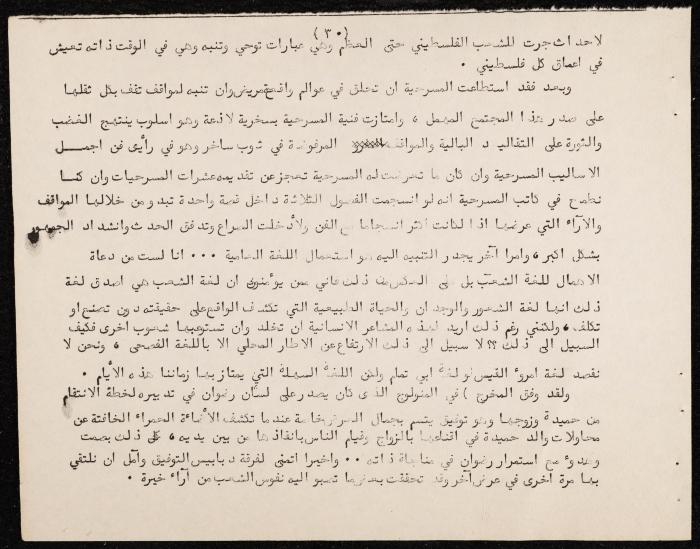 (٣٠)
لاحداث جرت للشعب الفلسطيني حتى العظم وهي عبارات توحي وتنبه وهي في الوقت ذاته تعيش
في اعماق كل فلسطيني .
وبعد فقد استطاعت المسرحية ان تحلق في عوالم وان تنبه لمواقف تقف بكل ثقلها
على صدر هذا المجتمع المهمل ، وامتازت فنية المسرحية بسخرية لاذعة وهو اسلوب ينتهج الغضب
والثورة على التقاليد البالية والمواقف المرفوضة في ثوب ساخر وهو في رأيي فن اجمل
الاساليب المسرحية وان كان ما تعرضت له المسرحية تعجز عن تقديمه عشرات المسرحيات وان كنا
نطمح في كاتب المسرحية انه لو انسجمت الفصول الثلاثة داخل قصة واحدة تبدو من خلالها المواقف
والآراء التي عرضها اذا لكانت اكثر انسجاما مع الفن ولأدخلت الصراع وتدفق الحدث وانشداد الجمهور
بشكل اكبر ، وامرا آخر يجدر التنبيه اليه هو استعمال اللغة العامية ... انا لست من دعاة
الاهمال للغة الشعب بل على العكس من ذلك فاني ممن يؤمنون ان لغة الشعب هي اصدق لغة
ذلك انها لغة الشعور والوجدان والحياة الطبيعية التي تكشف الواقع على حقيقته دون تصنع او
تكلف ، ولكنني رغم ذلك اريد لهذه المشاعر الانسانية ان تخلد وان تستوعبها شعوب اخرى فكيف
السبيل الى ذلك ؟؟ لا سبيل الى ذلك الارتفاع عن الاطار المحلي الا باللغة الفصحى ، ونحن لا
نقصد لغة امرؤ القيس او لغة ابي تمام ولكن اللغة السهلة التي يمتاز بها زماننا هذه الأيام .
ولقد وفق المخرج ) في المنولوج الذي كان يصدر على لسان رضوان في تدبيره لخطة الانتقام
من حميدة وزوجها وهو توفيق يتسم بجمال العرض خاصة عندما تكشف الأضاءة الحمراء الخافتة عن
محاولات والد حميدة في اقناعها بالزواج وقيام الناس بانقاذها من بين يديه ، كل ذلك بصمت
وهدوء مع استمرار رضوان في مناجاة ذاته .. واخيرا اتمنى لفرقة دبابيس التوفيق وآمل ان نلتقي
بها مرة اخرى في عرض آخر وقد تحققت بعض ما تصبو اليه نفوس الشعب من آراء خيرة .